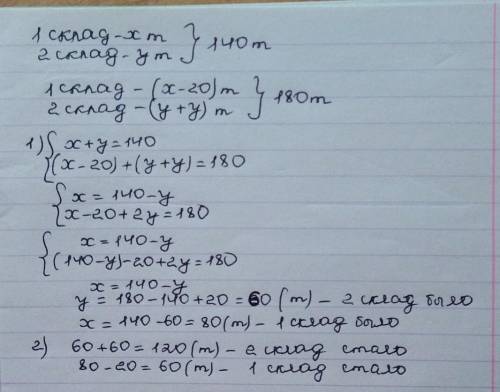 1 склад - x т } 140 т
2 склад - y т
1 склад - (x-20) т } 180 т
2 склад - (y+y) т
1) { x+y=140
(x-20)+(y+y)=180
{ x=140-y
x-20+2y=180
{ x=140-y
(140-y)-20+2y=180
x=140-y
y=180-140+20=60 (т) - 2 склад было
x=140-60=80 (т) - 1 склад было
2) 60+60=120 (т) - 2 склад стало
80-20=60 (т) - 1 склад стало